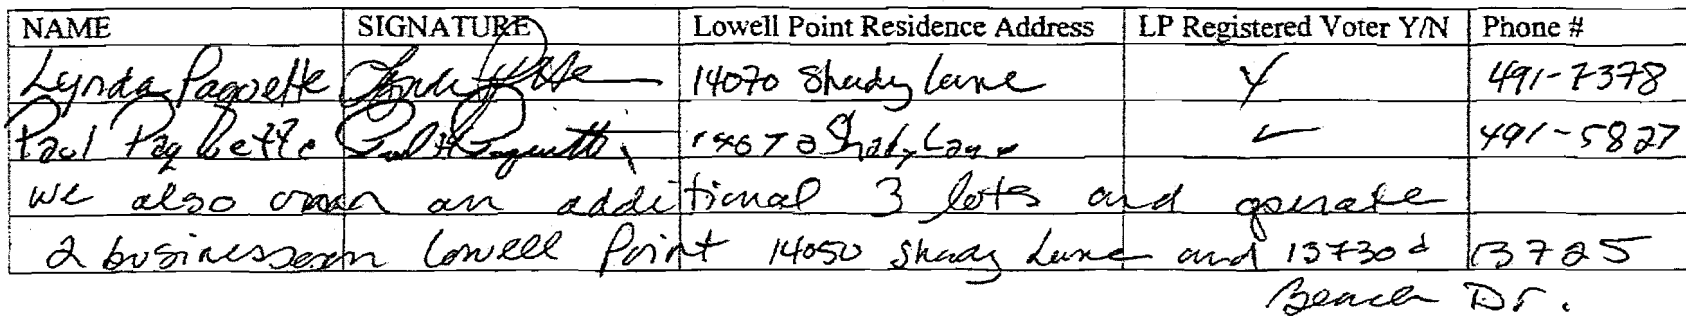 NAME SIGNATURE Lowell Point Residence Address LP Registered Voter Y/N Phone #
Lynda Paquette 14070 Shady Lane Y 491-7378
Paul Paquette Paul H Paquette 14070 Shady Lane 491-5827
we also own an additional 3 lots and operate
2 businesses on Lowell Point 14050 Shady Lane and 13730 & 13725
Beach Dr.